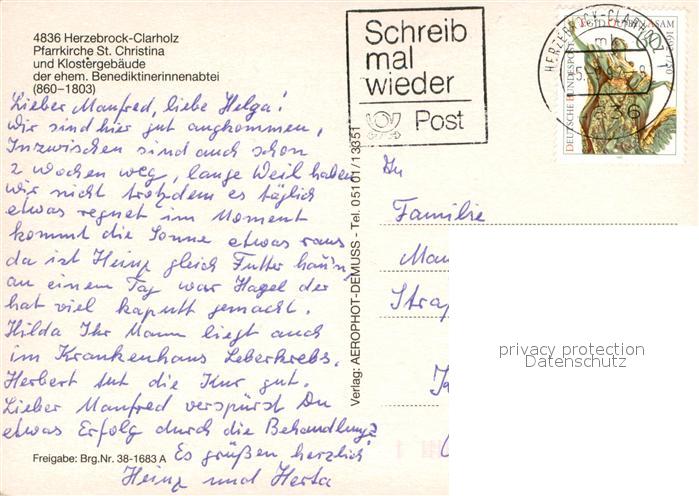 4836 Herzebrock-Clarholz
Pfarrkirche St. Christina
und Klostergebäude
der ehem. Benediktinerinnenabtei
(860–1803)
Lieber Manfred, liebe Helga!
Wir sind hier gut angkommen,
Inzwischen sind auch schon
2 Wochen weg, lange Weil haben
wir nicht trotzdem es täglich
etwas regnet im Moment
kommt die Sonne etwas raus
da ist Heinz gleich Futter
an einem Tag war Hagel der
hat viel kaputt gemacht.
Hilda Ihr Mann liegt auch
im Krankenhaus Leberkrebs.
Herbert tut die Kur gut.
Lieber Manfred verspürst Du
etwas Erfolg durch die Behandlung?
Es grüßen herzlich
Heinz und Herta
Freigabe: Brg.Nr. 38-1683 A
Verlag: AEROPHOT-DEMUSS - Tel. 05101/13351
Schreib
mal
wieder
Post
HERZEBROCK-CLARHOLZ
mb
4836
DEUTSCHE BUNDESPOST
60
An
Familie
privacy protection
Datenschutz